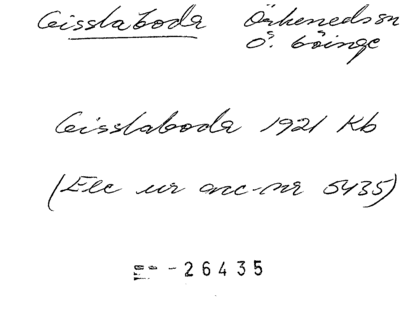 Gisslaboda Örkeneds sn
Ö. Göinge
Gisslaboda 1921 Kb
(Elc ur acc-nr 5435)
- 26435